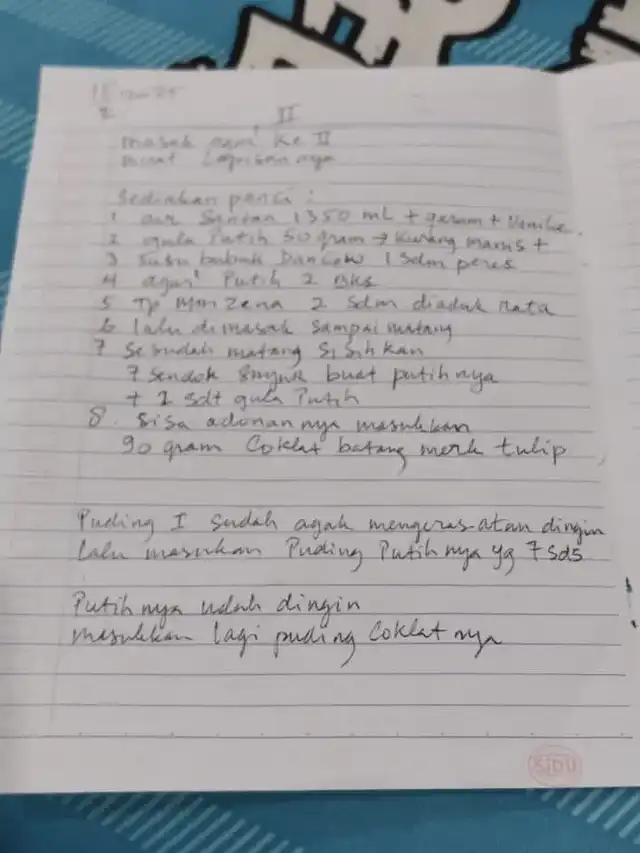 2
II
masak agar² Ke II
buat Lapisannya
Sediakan panci :
1 air Santan 1350 mL + garam + Vanilie.
2 gula Putih 50 gram → Kurang manis +
3 Susu bubuk Dancow 1 sdm peres
4 agar² Putih 2 Bks
5 Tp MmZena 2 Sdm diaduk rata
6 lalu dimasak sampai matang
7 Sesudah matang Sisihkan
7 Sendok Sayur buat putihnya
+ 1 sdt gula Putih
8. Sisa adonannya masukkan
90 gram Coklat batang merk tulip
Puding I sudah agak mengeras atau dingin
lalu masukan Puding Putihnya yg 7 sds
Putihnya udah dingin
masukkan lagi puding Coklatnya
SiDU